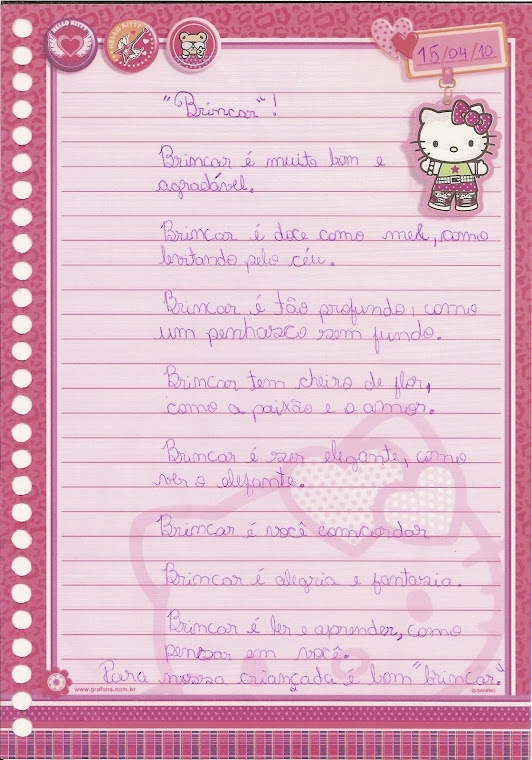 HELLO KITTY
15/04/10
"Brincar"!
Brincar é muito bom e
agradável.
Brincar é doce como mel, como
levitando pelo céu.
Brincar é tão profundo, como
um penhasco sem fundo.
Brincar tem cheiro de flor,
como a paixão e o amor.
Brincar é ser elegante, como
ver o elefante.
Brincar é você concordar
Brincar é alegria e fantasia.
Brincar é ler e aprender, como
pensar em você.
Para nossa criançada é bom "brincar."
www.grafons.com.br
© SANRIO